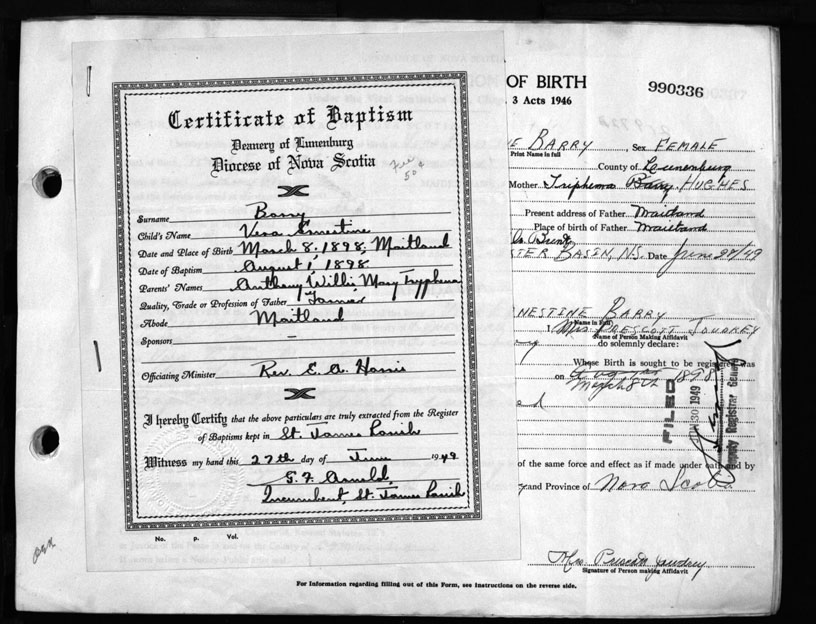 Certificate of Baptism
Deanery of Lunenburg
Diocese of Nova Scotia
Fee
50¢
Surname Barry
Child's Name Vera Ernestine
Date and Place of Birth March 8, 1898, Maitland
Date of Baptism August 1, 1898
Parents' Names Anthony Willis Mary Tryphena
Quality, Trade or Profession of Father Farmer
Abode Maitland
Sponsors —
Officiating Minister Rev. E. A. Harris
I hereby Certify that the above particulars are truly extracted from the Register
of Baptisms kept in St. James Parish
Witness my hand this 27th day of June 1949
G. F. Arnold
Incumbent, St. James Parish
No. P. Vol.
OF BIRTH
990336
3 Acts 1946
NE BARRY, Sex FEMALE
Print Name in full
County of Lunenburg
Mother Triphema Barry HUGHES
Present address of Father Maitland
Place of birth of Father Maitland
STER BASIN, N.S. Date June 27/49
NESTINE BARRY
Name in Full
I, Mrs PRESCOTT JOUDREY
Name of Person Making Affidavit
do solemnly declare:
Whose Birth is sought to be registered was
on August
March 8th 1898
FILED
30 1949
Deputy Registrar General
of the same force and effect as if made under oath and by
and Province of Nova Scotia
Mrs Prescott Joudrey
Signature of Person making Affidavit
For Information regarding filling out of this Form, see Instructions on the reverse side.